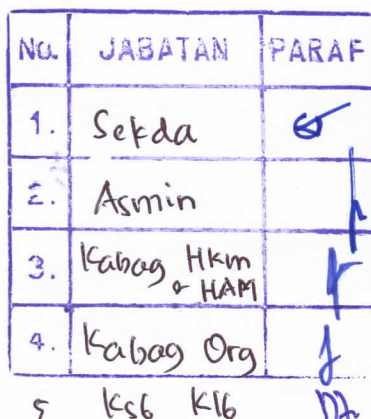 No. JABATAN PARAF
1. Sekda
2. Asmin
3. Kabag Hkm
& HAM
4. Kabag Org
5